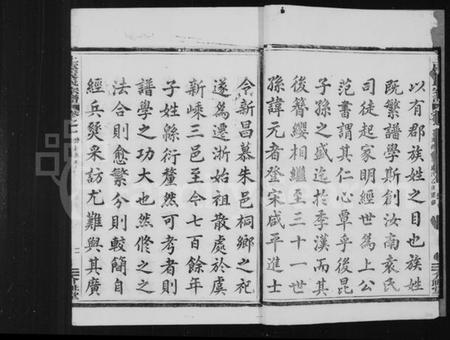 以有郡族姓之目也族姓
既繁譜學斯創汝南袁氏
司徒起家明經世為上公
范書謂其仁心覃乎後昆
子孫之盛迄於季漢而其
後簪纓相繼至三十一世
孫諱元者登宋咸平進士
令新昌慕朱邑桐鄉之祀
遂為遷浙始祖散處於虞
新嵊三邑至今七百餘年
子姓緜衍釐然可考者則
譜學之功大也然修之之
法合則愈繁分則較簡自
經兵燹采訪尤難與其廣